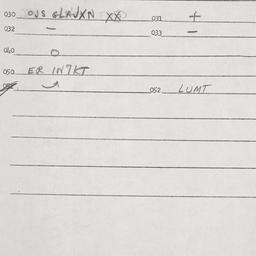 030 OJS GLAJXN XX 031 +
032 - 033 -
040 O
050 ER IN7KT
052 LUMT